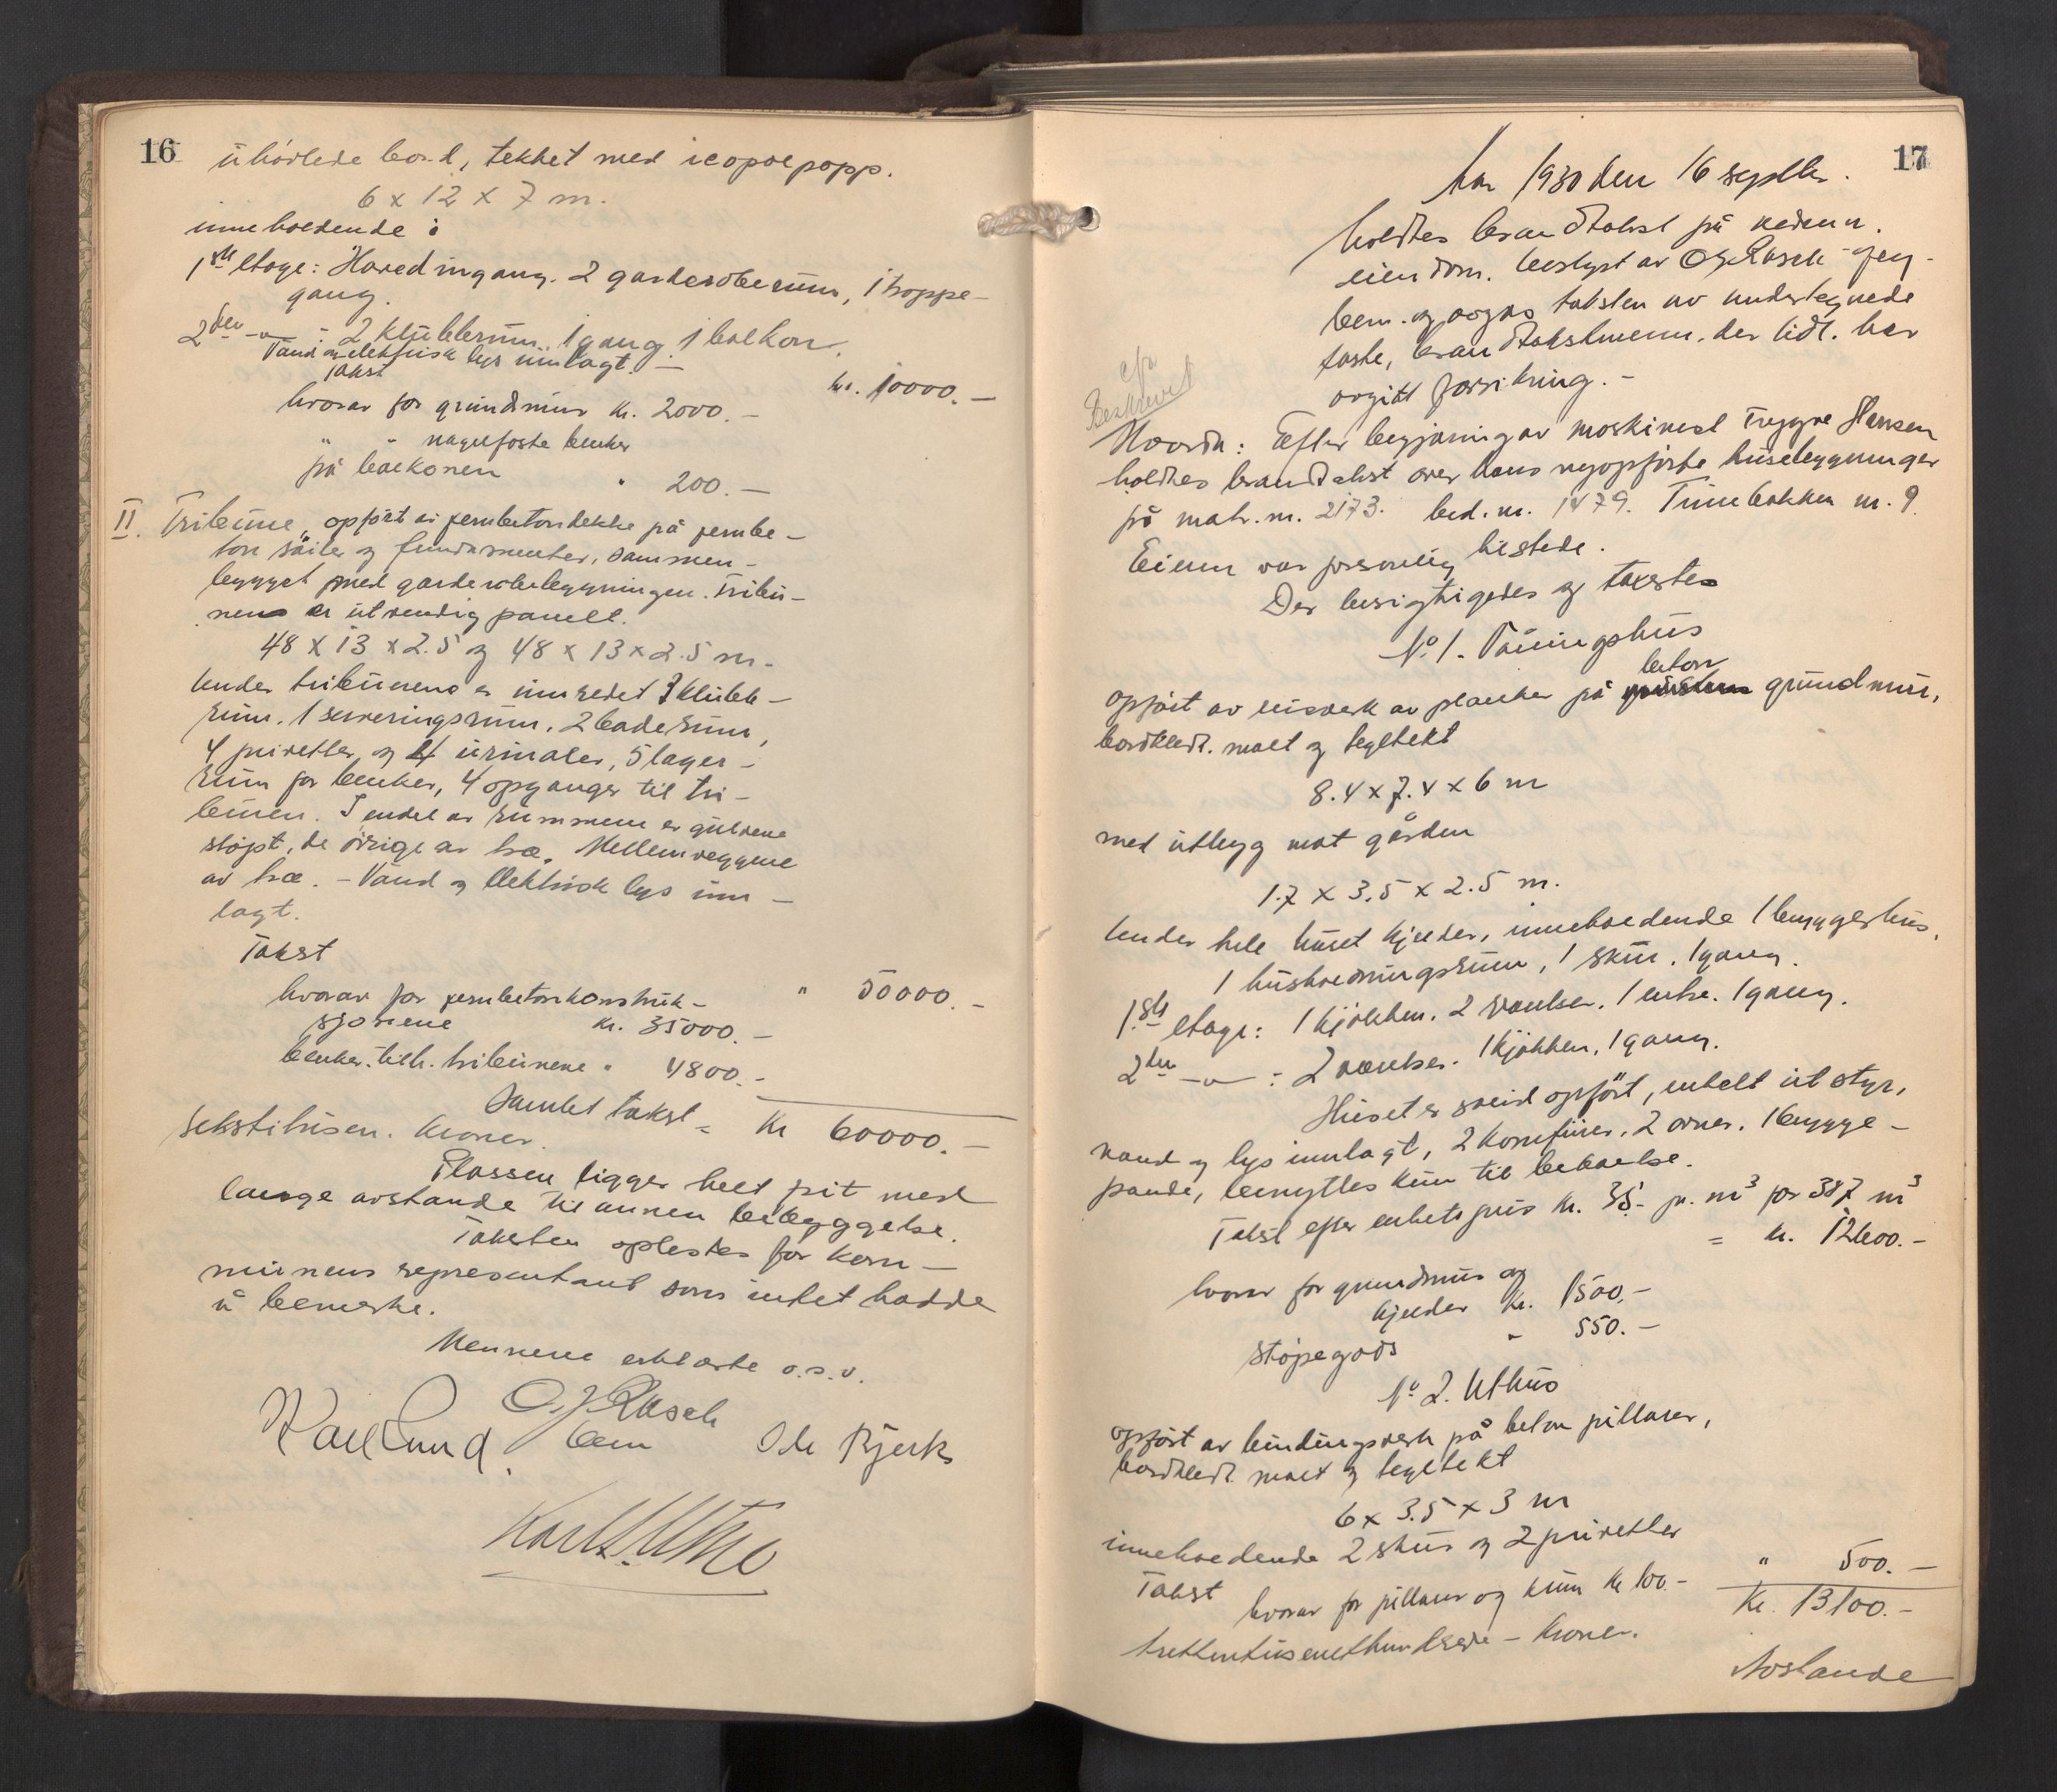 16
uhövlede bord, tekket med icopalpapp.
6 x 12 x 7 m.
inneholdende i
1ste Etage: Hovedingang. 2 garderoberum, 1 trappe-
gang.
2den -"- : 2 klubberum. 1 gang. 1 balkon.
Vand og elektrisk lys innlagt. -
Takst kr. 10000. -
hvorav for grundmur kr. 2000. -
" " nagelfaste benker
på balkonen " 200. -
II. Tribune, opført av jernbetondekke på jernbe-
ton söiler og fundamenter, sammen-
bygget med garderobebygningen. Tribu-
nens er utvendig panelt.
48 x 13 x 2.5 og 48 x 13 x 2.5 m.
Under tribunene er innredet 3 klubb-
rum. 1 serveringsrum. 2 baderum,
4 privetter og 4 urinaler, 5 lager-
rum for benker, 4 opganger til tri-
bunen. I endel av rummene er gulvene
støpt, de övrige av træ. Mellemveggene
av træ. - Vand og Elektrisk lys inn-
lagt.
Takst " 50000. -
hvorav for jernbetonkonstruk-
sjonene kr. 35000. -
benker tilh. tribunene " 4800. -
Samlet takst = Kr 60000. -
Sekstitusen. Kroner.
Plassen ligger helt frit med
lange avstande til annen bebyggelse.
Taksten oplestes for kom-
munens representant som intet hadde
å bemerke.
Mennene erklærte o.s.v.
O. J. Rasch
Karl Lund. bem Ole Bjerk
17
Aar 1930 den 16 septbr.
holdtes brandtakst på nedenn.
eiendom. bestyrt av O J Rasch
bem. og avgas taksten av undertegnede
faste, brandtakstmenn. der tidl. har
avgitt forsikring. -
Beskrevet
Hvorda: Efter begjæring av maskinist Trygve Hansen
holdtes brandtakst over hans nyopførte husebygninger
på matr. nr. 2173. bed. nr. 1479. Tunebakken nr. 9
Eieren var personlig tilstede.
Der besigtigedes og taxertes
No 1. Våningshus
opført av reisverk av planker på beton grundmur,
bordkledt. malt og tegltekt
8.4 x 7.4 x 6 m
med utbygg mot gården
1.7 x 3.5 x 2.5 m.
Under hele huset kjelder, inneholdende 1 bryggerhus,
1 husholdningsrum, 1 skur. 1 gang.
1ste Etage: 1 kjökken. 2 værelser. 1 entre. 1 gang.
2den -"- : 2 værelser. 1 kjökken, 1 gang.
Huset er solid opført, enkelt utstyr,
vand og lys innlagt, 2 komfurer. 2 ovner. 1 brygge-
pande, benyttes kun til beboelse.
Takst efter enhetspris kr. 35.- pr. m3 for 387 m3
= kr. 12600. -
hvorav for grundmur og
kjelder kr. 1500. -
støpegods " 550. -
No 2. Uthus
opført av bindingsverk på beton pillarer,
bordkledt malt og tegltekt
6 x 3.5 x 3 m
inneholdende 2 skur og 2 privetter
Takst " 500. -
hvorav for pillarer og kum kr 100. -
Kr. 13100. -
trettentusenethundrede - Kroner.
Avstande